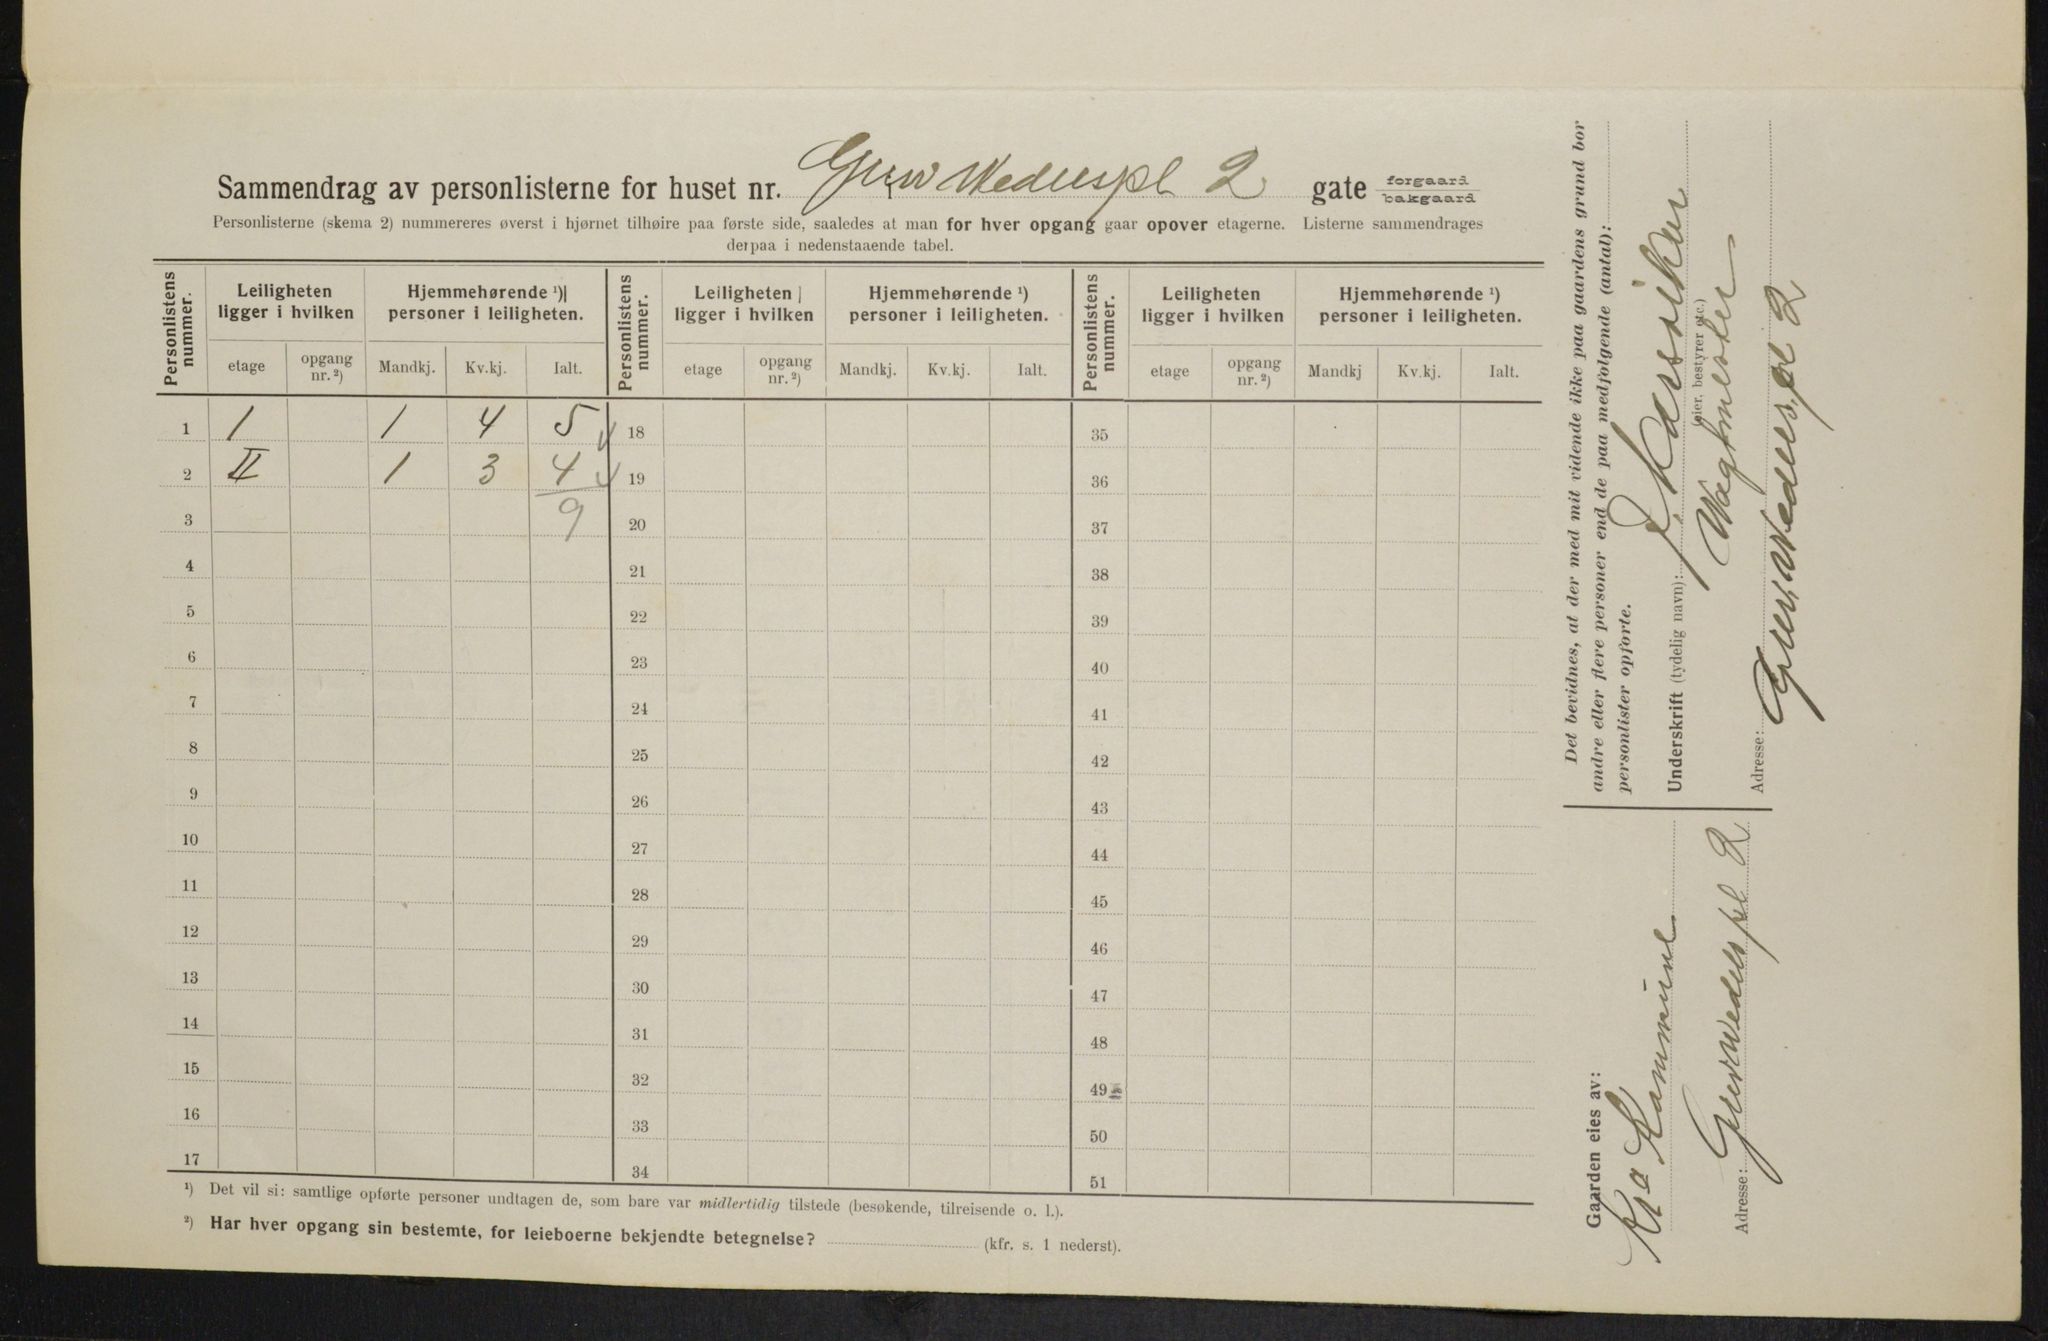 Sammendrag av personlisterne for huset nr. Grev Wedelspl 2 gate forgaard bakgaard
Personlisterne (skema 2) nummereres øverst i hjørnet tilhøire paa første side, saaledes at man for hver opgang gaar opover etagerne. Listerne sammendrages
derpaa i nedenstaaende tabel.
Personlistens nummer. Leiligheten ligger i hvilken Hjemmehørende ¹) personer i leiligheten. Personlistens nummer. Leiligheten ligger i hvilken Hjemmehørende ¹) personer i leiligheten. Personlistens nummer. Leiligheten ligger i hvilken Hjemmehørende ¹) personer i leiligheten.
etage opgang nr. ²) Mandkj. Kv.kj. Ialt. etage opgang nr. ²) Mandkj. Kv.kj. Ialt. etage opgang nr. ²) Mandkj Kv.kj. Ialt.
1 1 1 4 5 18 35
2 II 1 3 4 19 36
3 9 20 37
4 21 38
5 22 39
6 23 40
7 24 41
8 25 42
9 26 43
10 27 44
11 28 45
12 29 46
13 30 47
14 31 48
15 32 49
16 33 50
17 34 51
¹) Det vil si: samtlige opførte personer undtagen de, som bare var midlertidig tilstede (besøkende, tilreisende o. l.).
²) Har hver opgang sin bestemte, for leieboerne bekjendte betegnelse? (kfr. s. 1 nederst).
Det bevidnes, at der med mit vidende ikke paa gaardens grund bor
andre eller flere personer end de paa medfølgende (antal):
personlister opførte.
Underskrift (tydelig navn):
(eier, bestyrer etc.)
Vagtmester
Adresse: Grev Wedelspl 2
Gaarden eies av:
Kra Kommune
Adresse: Grev Wedelspl 2